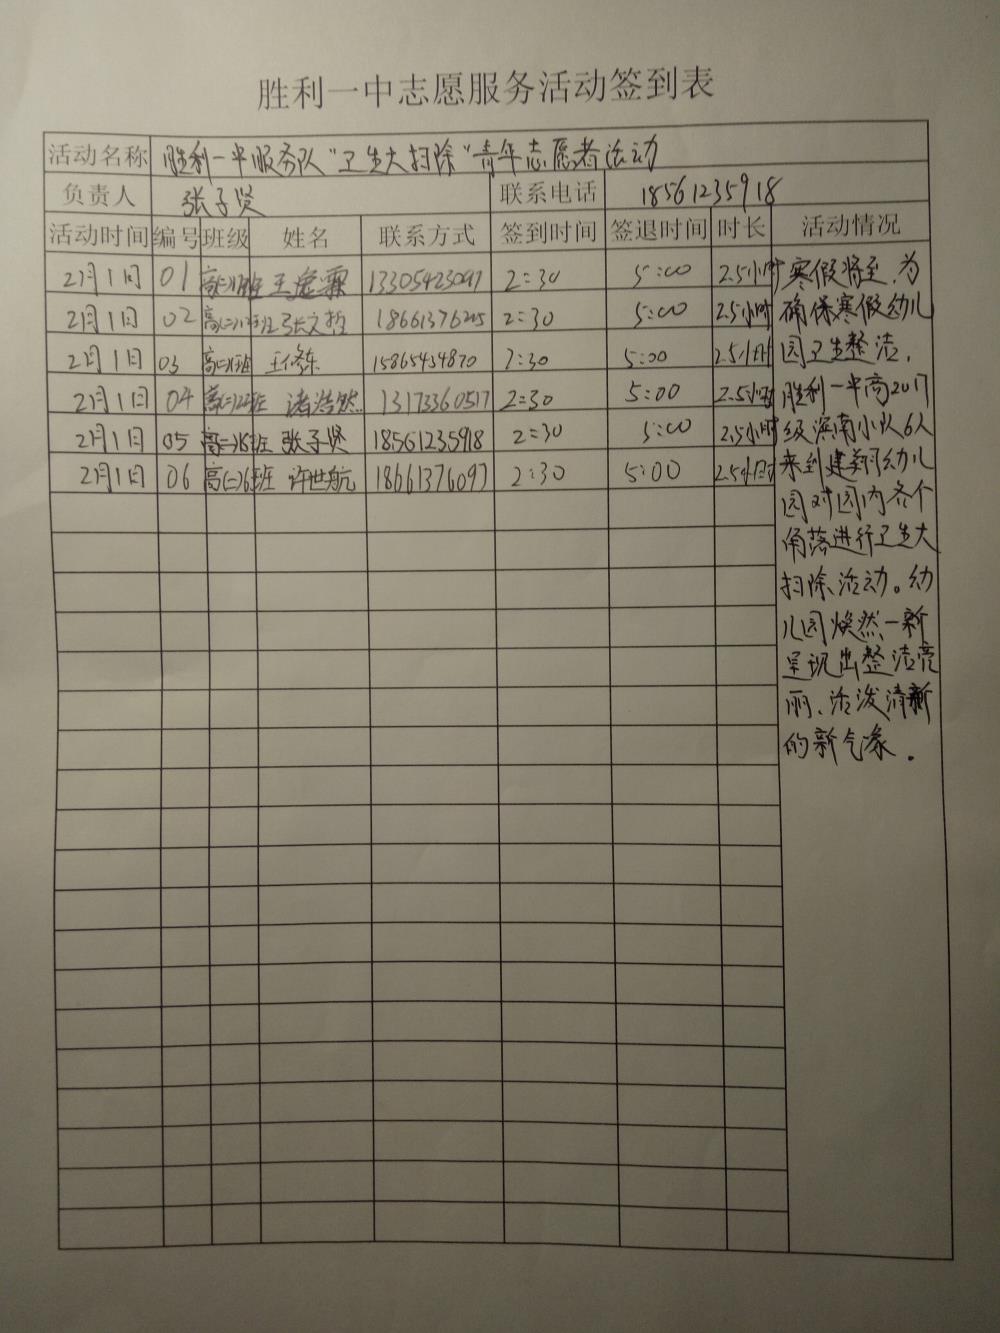 胜利一中志愿服务活动签到表
活动名称 胜利一中服务队“卫生大扫除”青年志愿者活动
负责人 张子贤 联系电话 18561235918
活动时间 编号 班级 姓名 联系方式 签到时间 签退时间 时长 活动情况
2月1日 01 高二 班 王 霖 13305423097 2:30 5:00 2.5小时 寒假将至,为
2月1日 02 高(二) 班 张文哲 18661376 2:30 5:00 2.5小时 确保寒假幼儿
2月1日 03 高二 班 王修东 15865434870 2:30 5:00 2.5小时 园卫生整洁,
2月1日 04 高二 班 诸浩然 13173360517 2:30 5:00 2.5小时 胜利一中高2017
2月1日 05 高二 班 张子贤 18561235918 2:30 5:00 2.5小时 级滨南小队6人
2月1日 06 高(二) 班 许世航 18661376097 2:30 5:00 2.5小时 来到建翔幼儿
园对园内各个
角落进行卫生大
扫除活动。幼
儿园焕然一新
呈现出整洁亮
丽、活泼清新
的新气象.